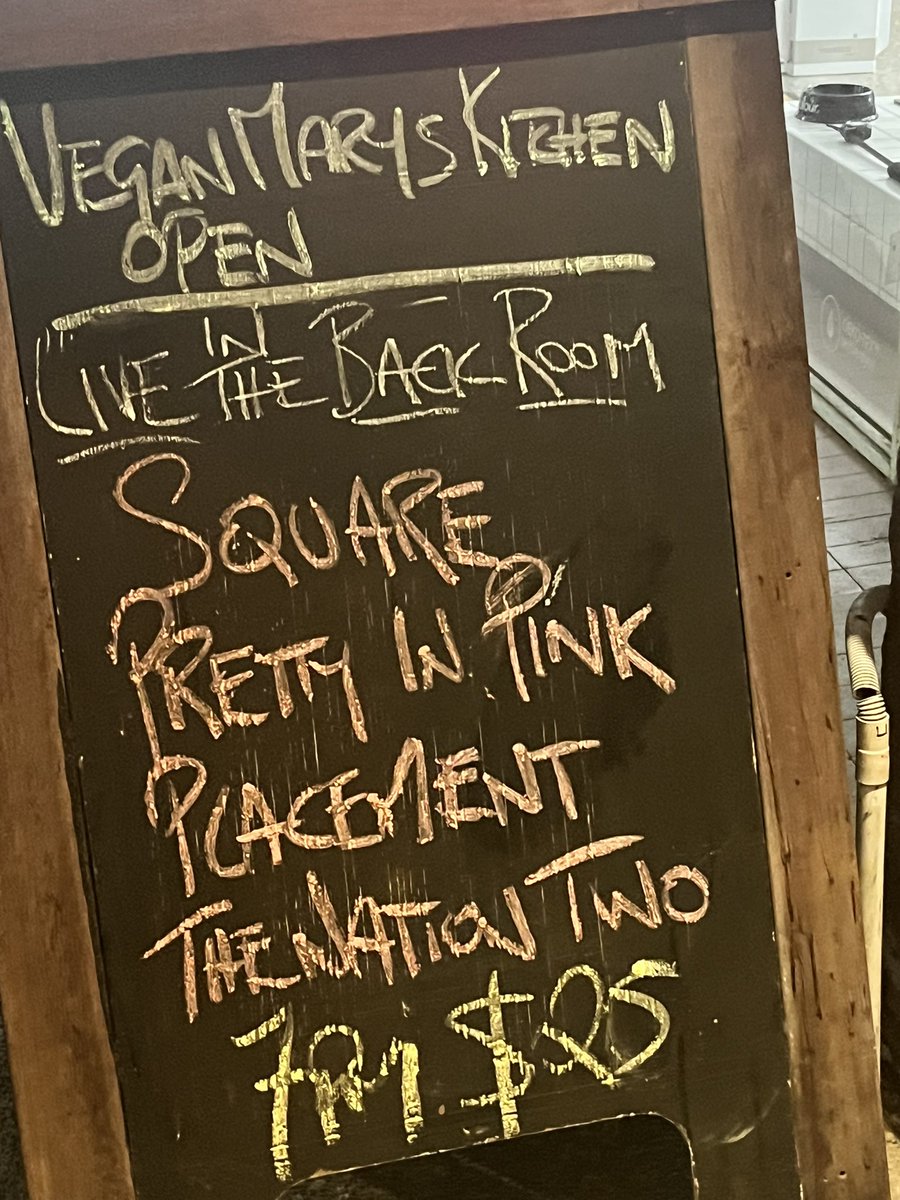 VEGAN MARYS KITCHEN
OPEN
LIVE IN THE BACK ROOM
SQUARE
PRETTY IN PINK
PLACEMENT
THE NATION TWO
7PM $25